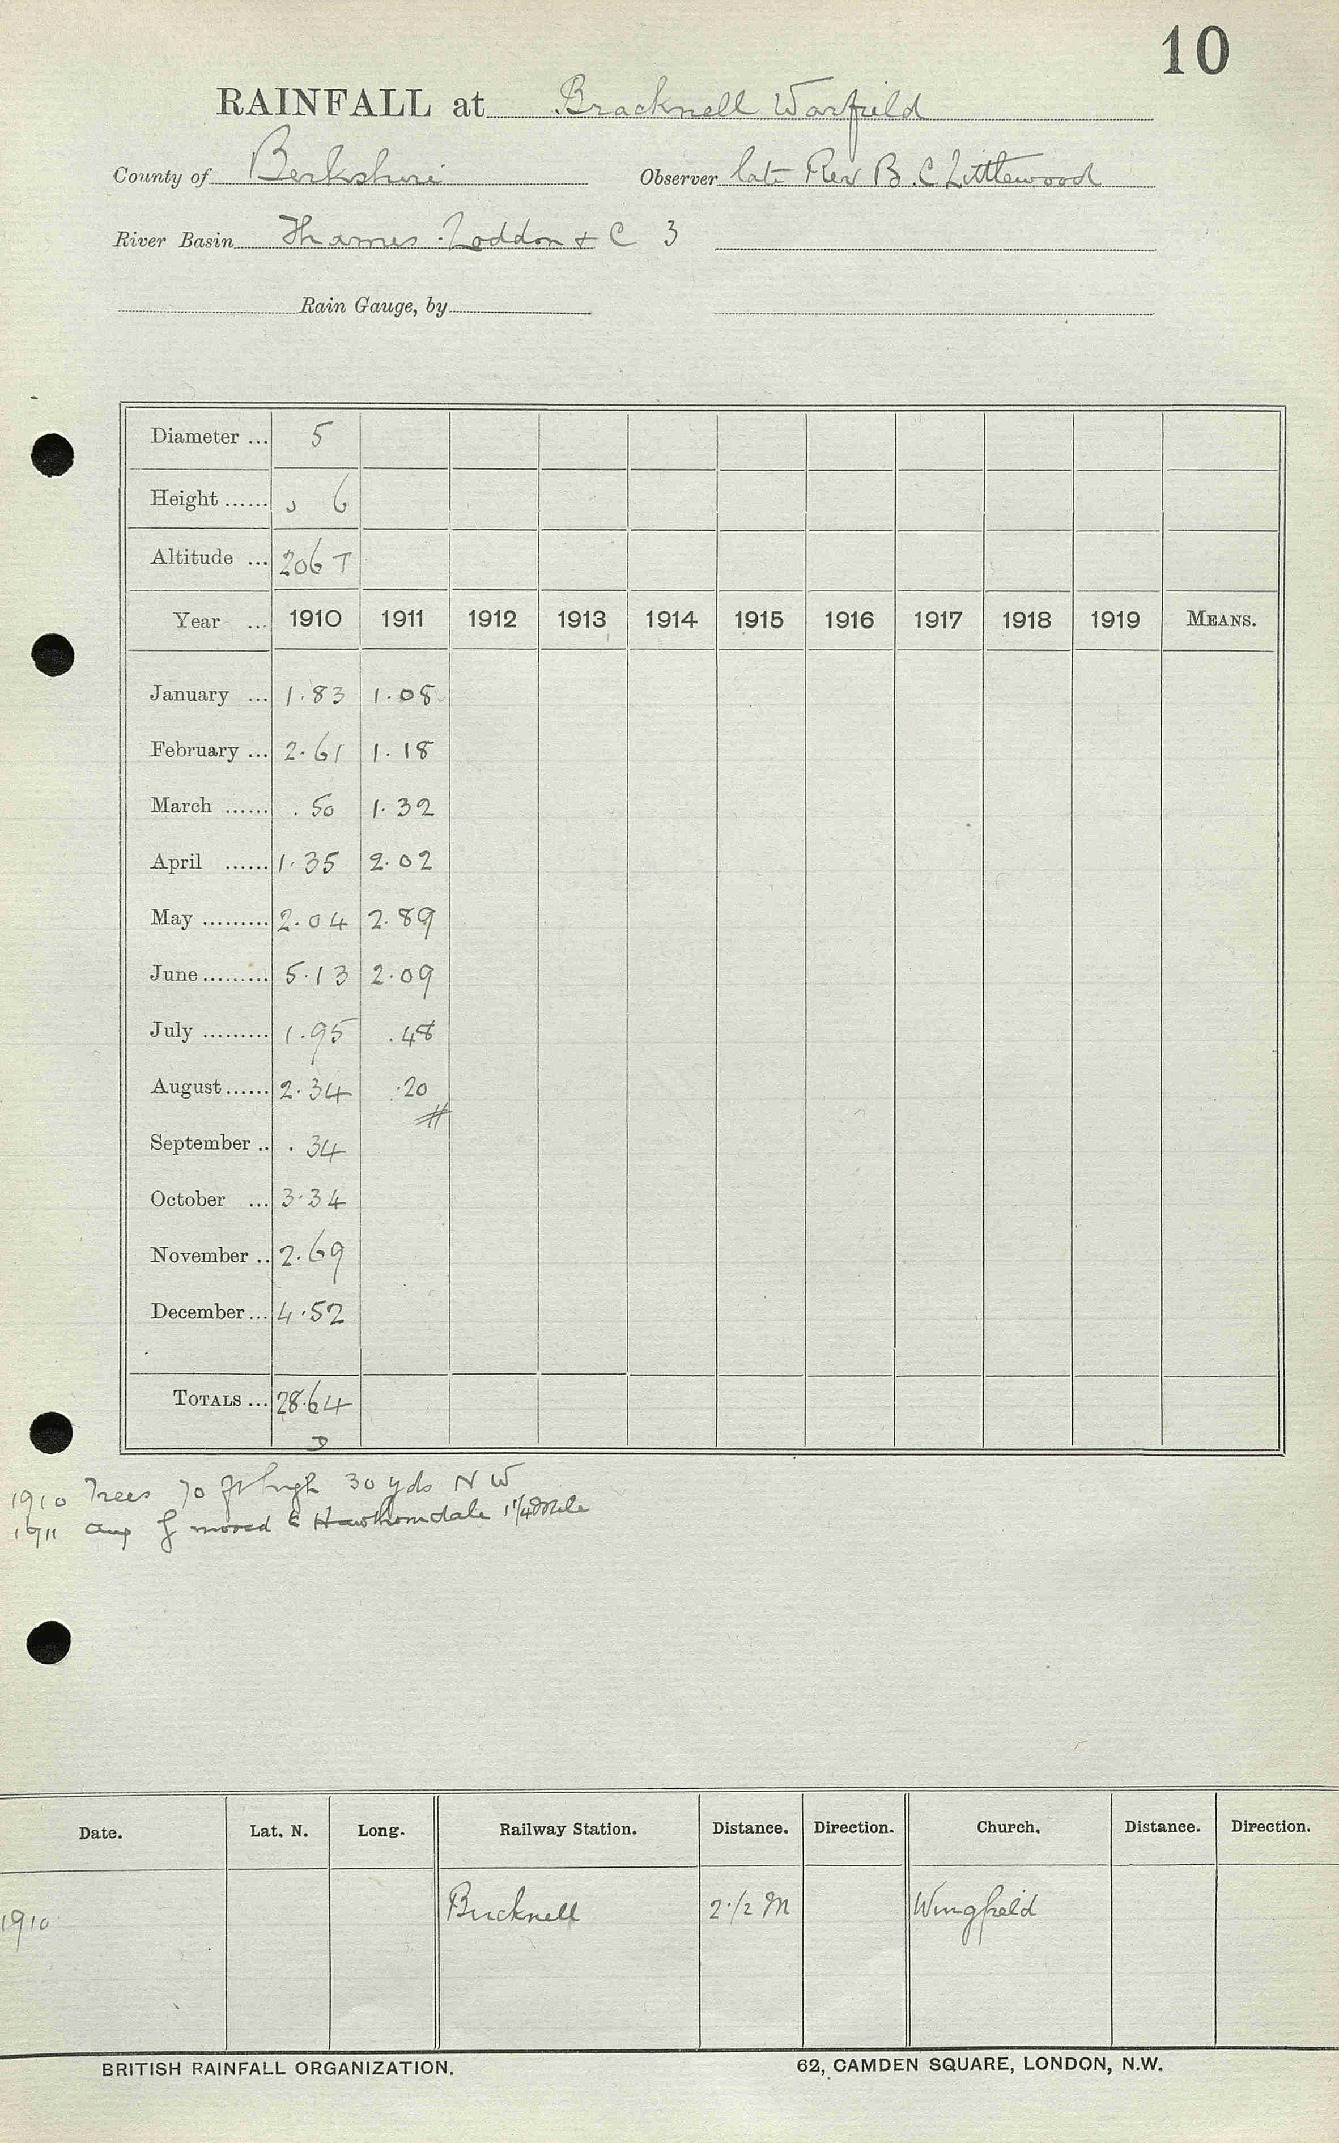 10
RAINFALL at Bracknell Warfield
County of Berkshire Observer late Rev B. C Littlewood
River Basin Thames. Loddon + C 3
Rain Gauge, by
Diameter ... 5
Height ...... 0 6
Altitude ... 206 T
Year ... 1910 1911 1912 1913 1914 1915 1916 1917 1918 1919 MEANS.
January ... 1.83 1.08
February ... 2.61 1.18
March ...... .50 1.32
April ...... 1.35 2.02
May ......... 2.04 2.89
June ......... 5.13 2.09
July ......... 1.95 .48
August ...... 2.34 .20
#
September .. .34
October ... 3.34
November .. 2.69
December ... 4.52
TOTALS ... 28.64
D
1910 Trees 70 ft high 30 yds N W
1911 Aug g moved to Hawthorndale 1 1/4 Mile
Date. Lat. N. Long. Railway Station. Distance. Direction. Church. Distance. Direction.
1910 Bucknell 2 1/2 M Wingfield
BRITISH RAINFALL ORGANIZATION. 62, CAMDEN SQUARE, LONDON, N.W.